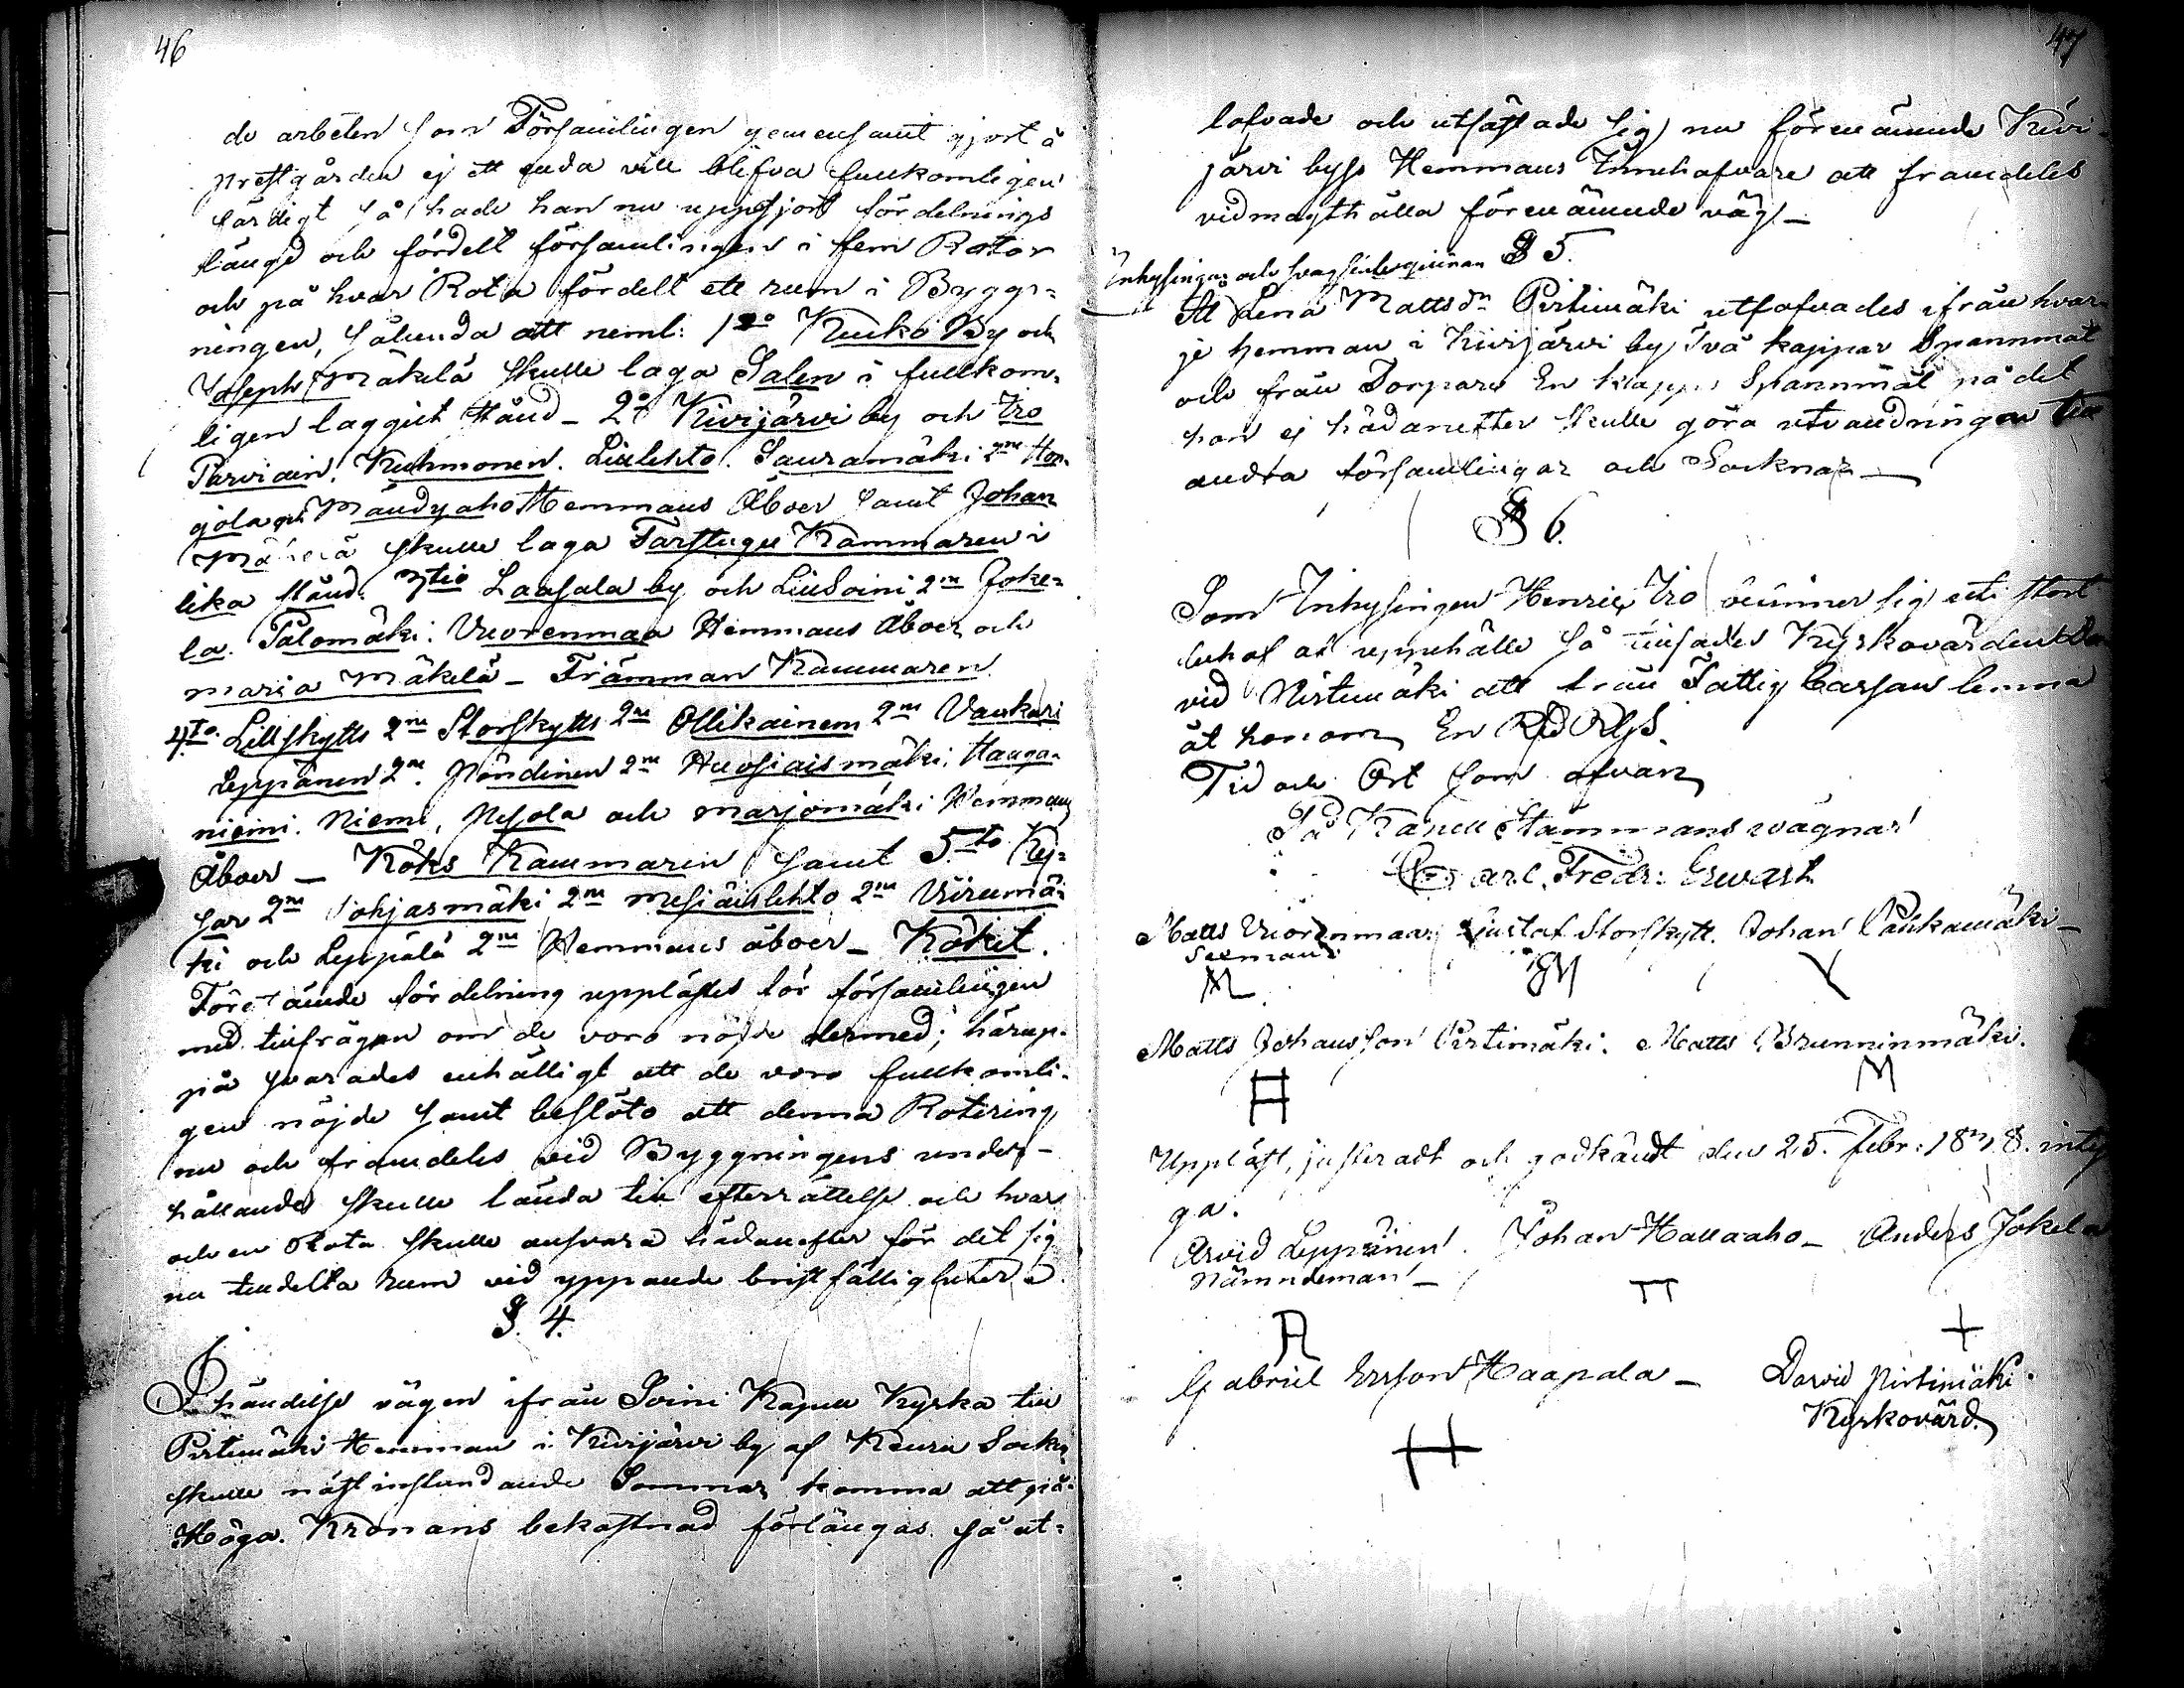 46
de arbeten som Församlingen gemensamt gjort å
prestgården ej ett enda vill blifva fullkomligen
färdigt så hade han nu uppgjort fördelnings
längd och fördelt församlingen i fem Rotar
och på hvar Rota fördelt ett rum i Bygg-
ningen, sålunda att neml: 1mo Kuko By och
Joseph Mäkelä skulle laga Salen i fullkom-
ligen laggilt stånd - 2o Kivijärvi by och Iro
Parviain. Kuhmonen. Liulehto. Sauramäki 2ne Hon-
gola och Mändyaho Hemmans Åboer samt Johan
Mäkelä skulle laga Farstugu Kammaren i
lika stånd. 3tio Laasala by och LillSoini 2ne Joke-
la. Palomäki. Vuorenmaa Hemmans Åboer och
Maria Mäkelä - Främman Kammaren.
4to. Lillskytts 2ne Storskytts 2ne Ollikainen 2ne Vaukari
Leppänen 2ne. Pöndinen 2ne Huosiaismäki. Hauga-
nieini. Niemi, Pesola och Marjomäki Hemmans
Åboer - Köks Kammaren samt 5to Key-
sar 2ne Pohjasmäki 2ne Mesiäislehto 2ne Viirumä-
ki och Leppälä 2ne Hemmans åboer - Köket.
Förestående fördelning upplästes för församlingen
med tillfrågan om de voro nöjde dermed; härup-
på svarades enhälligt att de voro fullkomli-
gen nöjde samt beslöto att denna Rotering
nu och framdeles vid Byggningens under-
hållande skulle lända till efterrättelse och hvar
och en Rota skulle ansvara hädanefter för det sig
nu tilldelta rum vid yppande bristfälligheter
§. 4.
I händelse vägen ifrån Soini Kapell Kyrka till
Pirtimäki Hemman i Kivijärvi by af Keuru Sockn
skulle nästinstundande Sommar komma att på
Höga Kronans bekostnad förlängas så ut-
47
lofvade och utfästade sig nu förenämnde Kivi-
järvi byss Hemmans Innehafvare att framdeles
vidmagthålla förenämnde väg -
Inhysingar och svagsinta qvinnan § 5.
At Lena Mattsdr Pirtimäki utlofvades ifrån hvar-
je hemman i Kivijärvi by Två kappar Spannmål
och från Torpare En kappe Spannmål på det
hon ej hädanefter skulle göra utvandringar till
andra församlingar och Socknar -
§ 6.
Som Inhysingen Henric Iro finner sig uti stort
behof af uppehälle så tillsades Kyrkovärden
vid Pirtimäki att från Fattig Cassan lemna
åt honom En Rd Rgs.
Tid och Ort som ofvan
På Kapell Stämmans vägnar
Carl. Fredr: Ervast
Matts Vuorenmaa Gustaf Storskytt. Johan Pahkamäki -
Sexman
Matts Johansson Pirtimäki. Matts Brunninmäki.
Uppläst, justeradt och godkändt den 25. Febr: 1838. inty
ga.
Arvid Leppänen. Johan Hallaaho - Anders Jokela
Nämndeman -
Gabriel Ersson Haapala - David Pirtimäki.
Kyrkovärd.